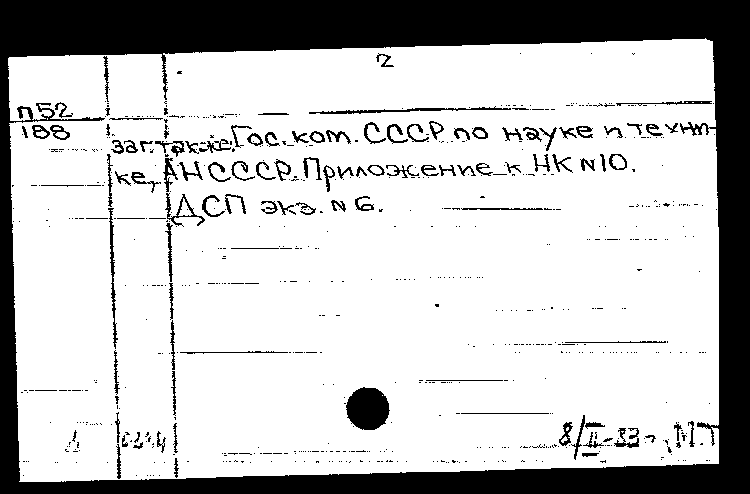 2
П52
188
заг.также: Гос. ком. СССР по науке и техни-
ке, АН СССР. Приложение к НК №10.
ДСП экз. №6.
Д
8/II-83г., М.Т